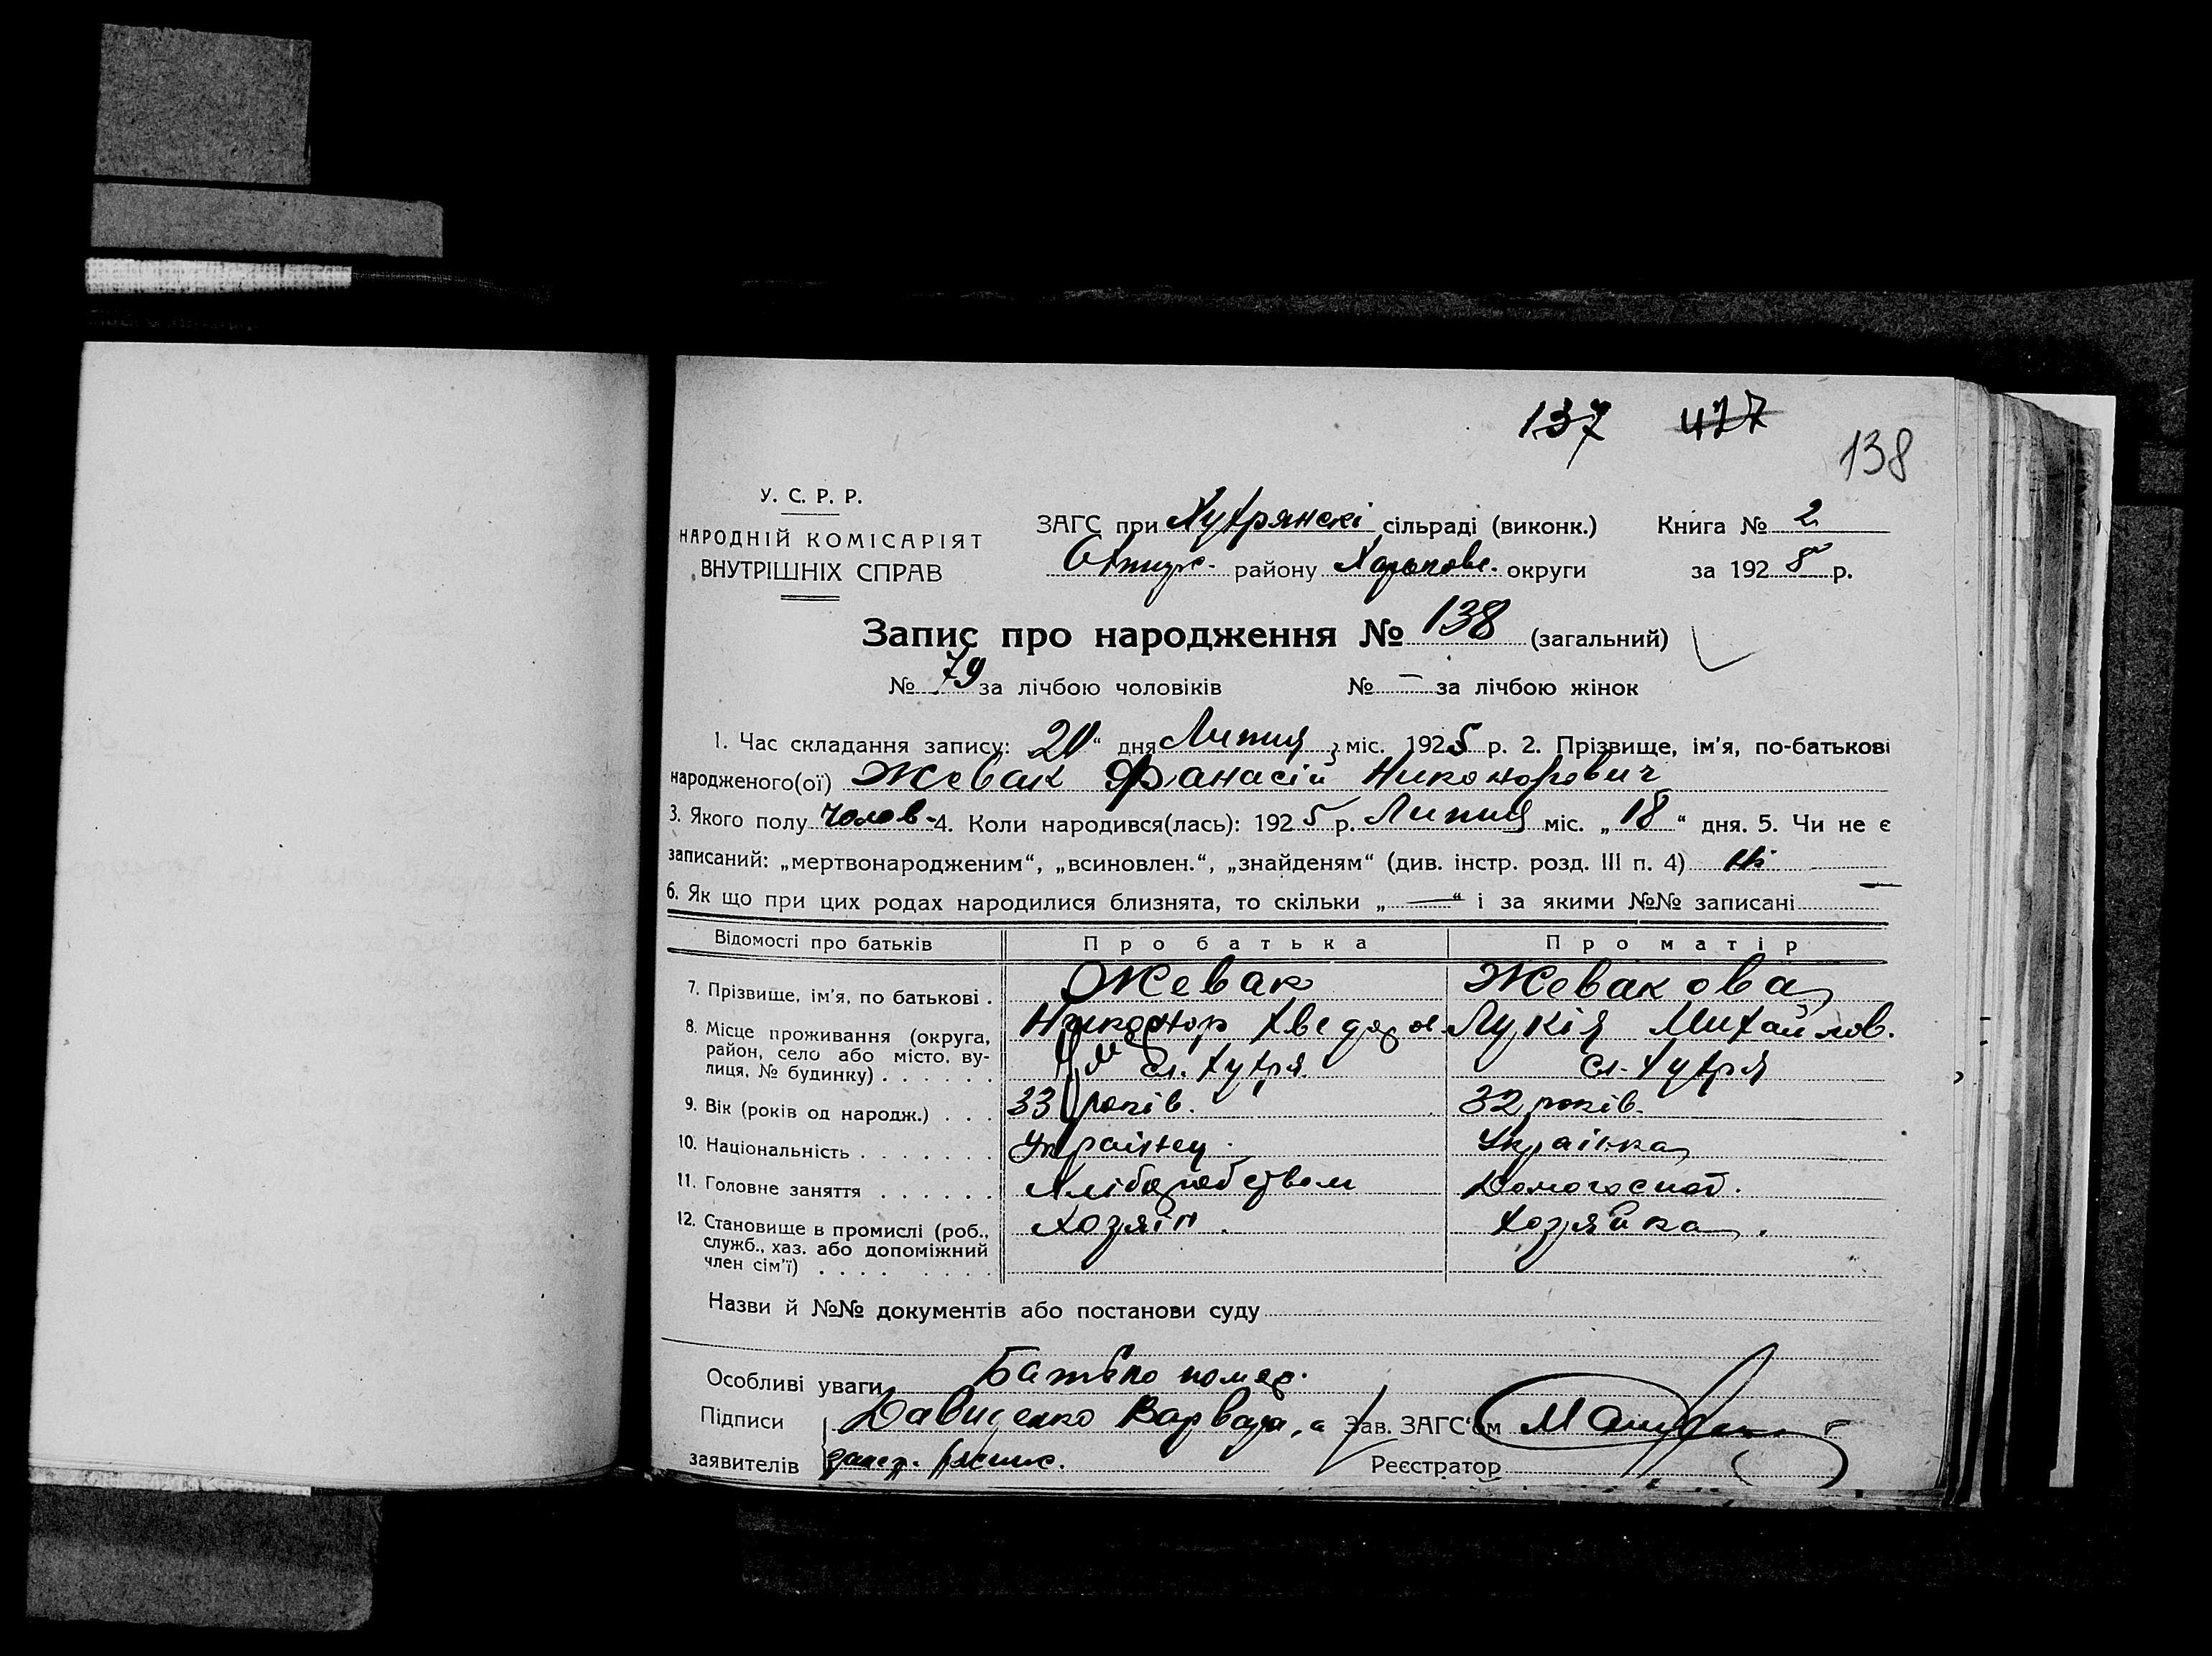 137 477
138
У. С. Р. Р.
НАРОДНІЙ КОМІСАРІЯТ
ВНУТРІШНІХ СПРАВ
ЗАГС при Хухрянскі сільраді (виконк.) Книга № 2
Охтирс. району Харьковс. округи за 1925 р.
Запис про народження № 138 (загальний)
№ 79 за лічбою чоловіків № — за лічбою жінок
1. Час складання запису: 20 “ дня Липня міс. 1925 р. 2. Прізвище, ім'я, по-батькові
народженого(ої) Жевак Фанасій Никонорович
3. Якого полу чолов. 4. Коли народився(лась): 1925 р. Липня міс. „ 18 “ дня. 5. Чи не є
записаний: „мертвонародженим“, „всиновлен.“, „знайденям“ (див. інстр. розд. III п. 4) Ні
6. Як що при цих родах народилися близнята, то скільки „ — “ і за якими №№ записані —
Відомості про батьків Про батька Про матір
7. Прізвище, ім'я, по батькові . Жевак Жевакова
Никонор Хведоров. Лукія Михайлов.
8. Місце проживання (округа, район, село або місто, вулиця, № будинку) . . . . . . сл. Хухря сл. Хухря
9. Вік (років од народж.) . . . 33 років. 32 років.
10. Національність . . . . . . . Українец. Українка
11. Головне заняття . . . . . . Хліборобством Домогоспод.
12. Становище в промислі (роб., служб., хаз. або допоміжний член сім'ї) . . . . . . . . Хозяїн. Хозяйка.
Назви й №№ документів або постанови суду
Особливі уваги Батько помер.
Підписи Давиденко Варвара, а Зав. ЗАГС'ом
заявителів Реєстратор